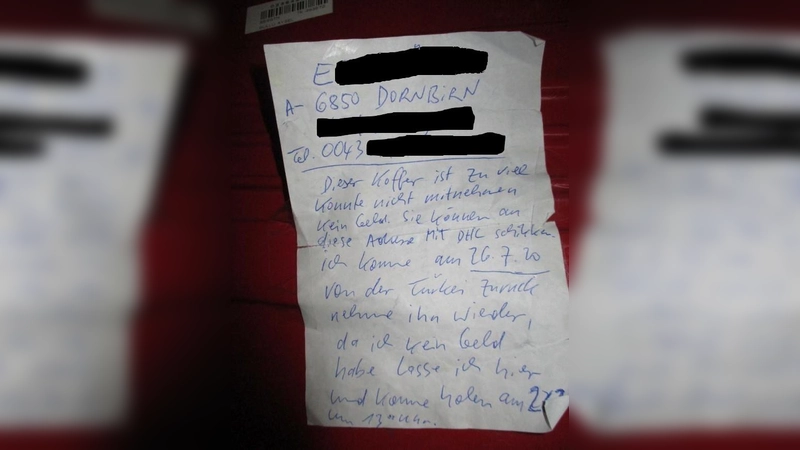 E
A- 6850 DORNBIRN
Tel. 0043
Dieser Koffer ist zu viel
konnte nicht mitnehmen
kein Geld. Sie können an
diese Adresse MIT DHL schicken.
ich komme am 26.7.20
von der Türkei zurück
nehme ihn wieder,
da ich kein Geld
habe lasse ich hier
und komme holen am
um 13